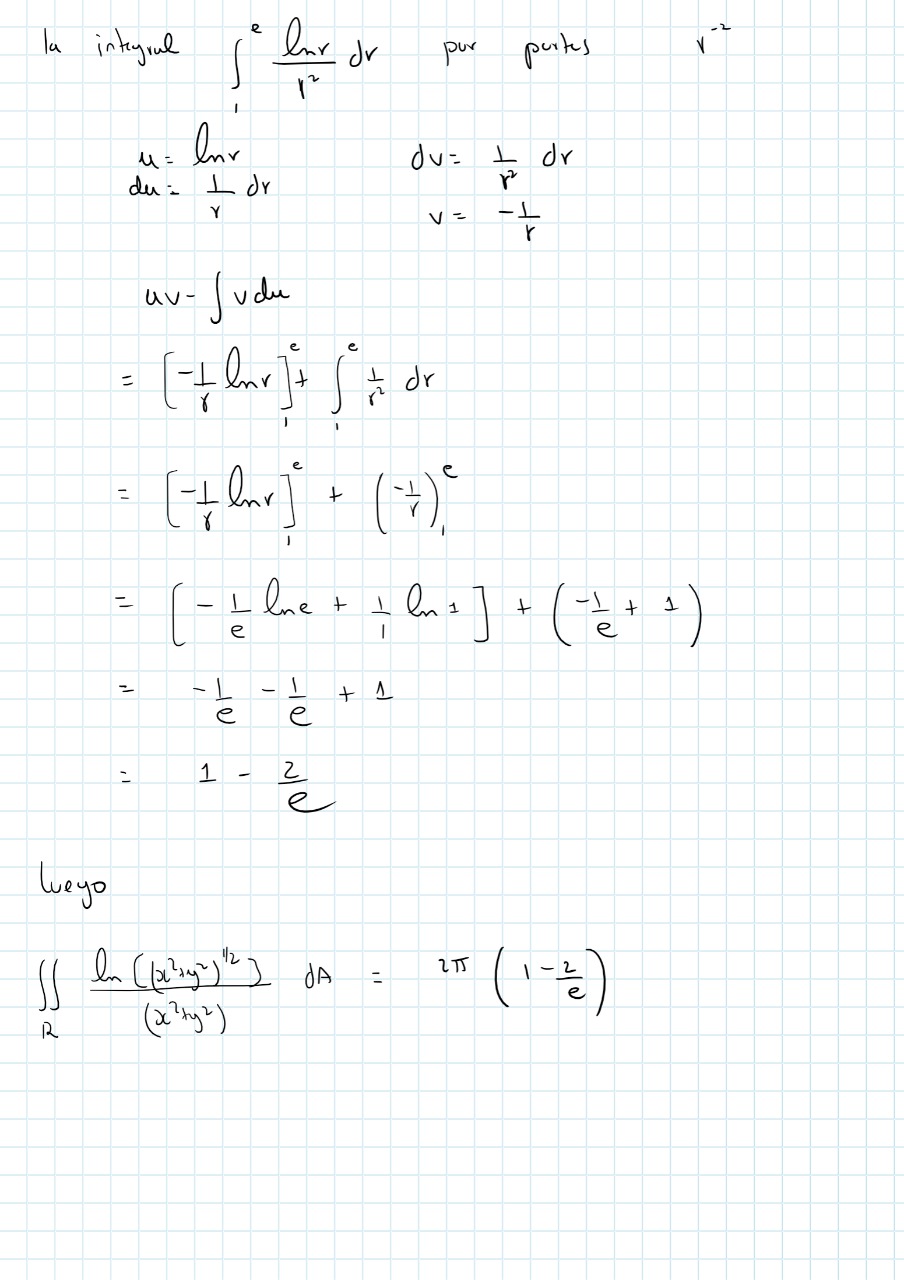 la integral ∫₁ᵉ ln r / r² dr por partes r⁻²
u = ln r dv = 1/r² dr
du = 1/r dr
v = -1/r
uv - ∫ v du
= [-1/r ln r]₁ᵉ + ∫₁ᵉ 1/r² dr
= [-1/r ln r]₁ᵉ + (-1/r)₁ᵉ
= [-1/e ln e + 1/1 ln 1] + (-1/e + 1)
= -1/e - 1/e + 1
= 1 - 2/e
luego
∬_R ln[(x²+y²)^1/2] / (x²+y²) dA = 2π (1 - 2/e)